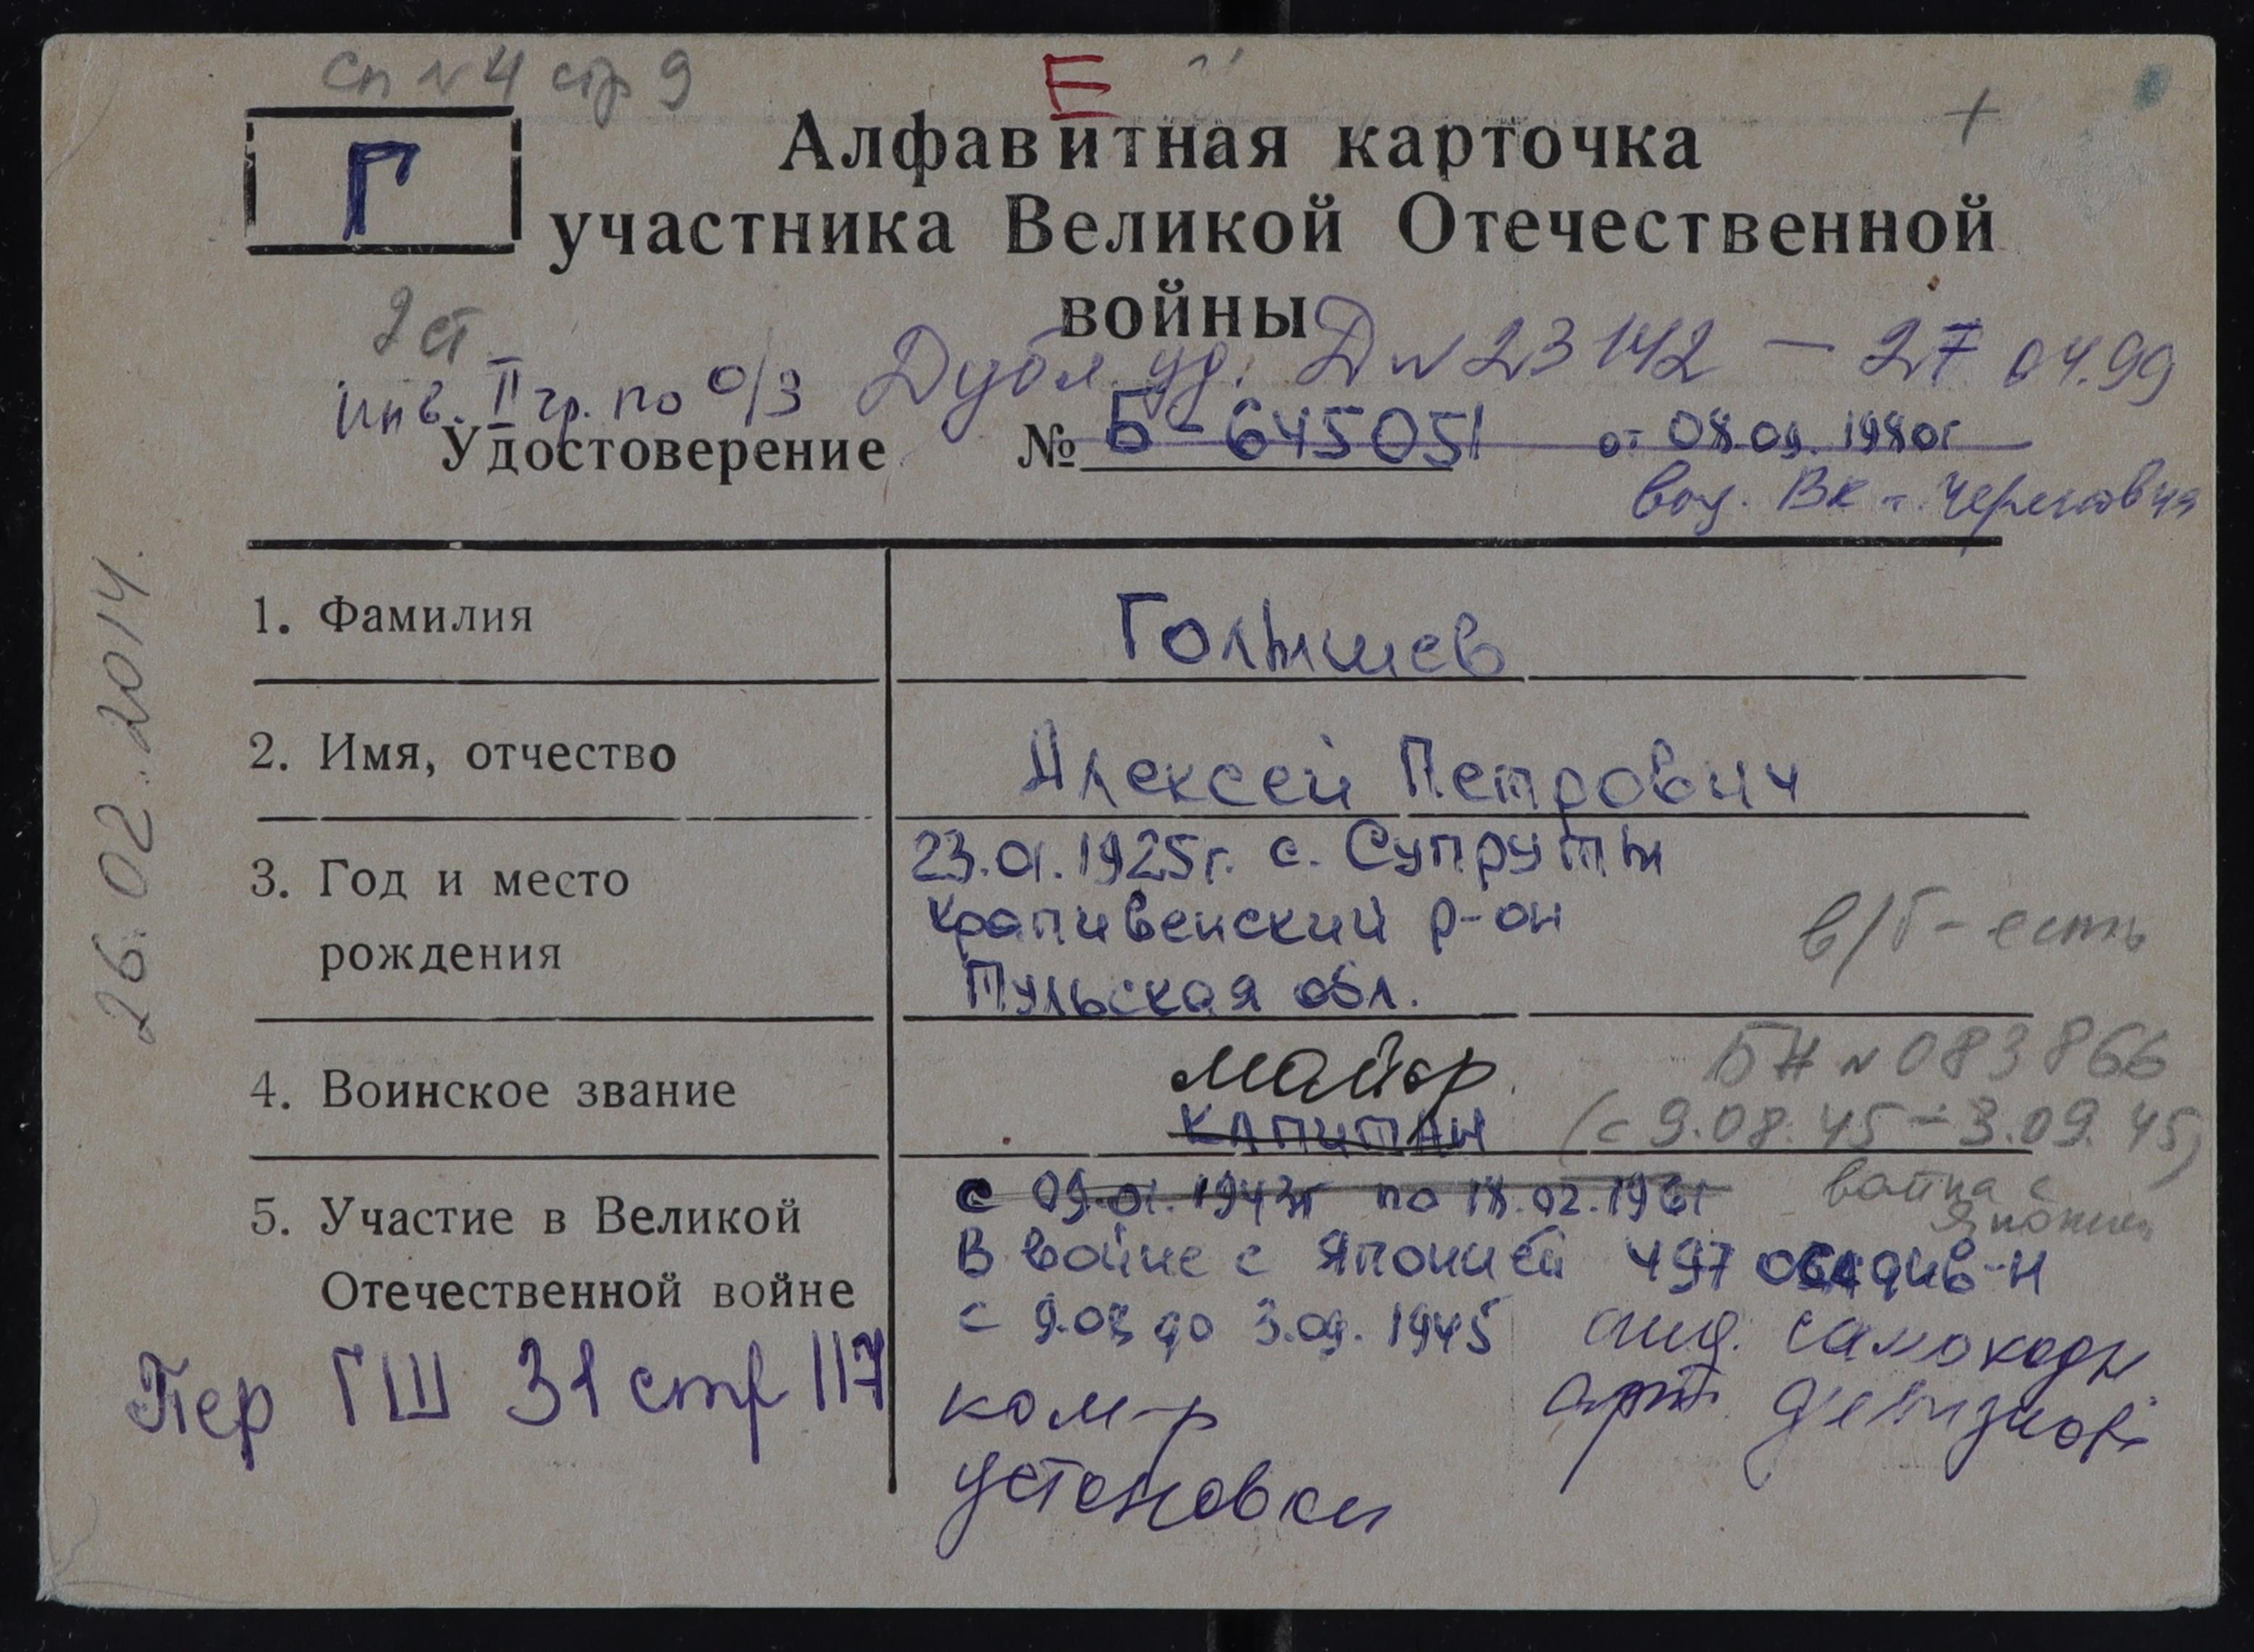 сп № 4 стр 9
Е
+
Г
Алфавитная карточка
участника Великой Отечественной
войны
2 ст
инв. II гр. по о/з Дубл. уд. Д № 23142 — 27.04.99
Удостоверение № Б-645051 от 08.09.1980г
выд. ВК г. Череповца
26.02.2014.
1. Фамилия
Голышев
2. Имя, отчество
Алексей Петрович
3. Год и место
рождения
23.01.1925г. с. Супруты
Крапивенский р-он
Тульская обл.
в/б - есть
4. Воинское звание
майор
капитан
БН № 083866
(с 9.08.45 - 3.09.45)
война с
Японией
5. Участие в Великой
Отечественной войне
с 09.01.1943г по 18.02.1961
В войне с Японией 497 див-н
с 9.08 до 3.09.1945
самоходн
арт. дивизион
ком-р
установки
Пер ГШ 31 стр 117